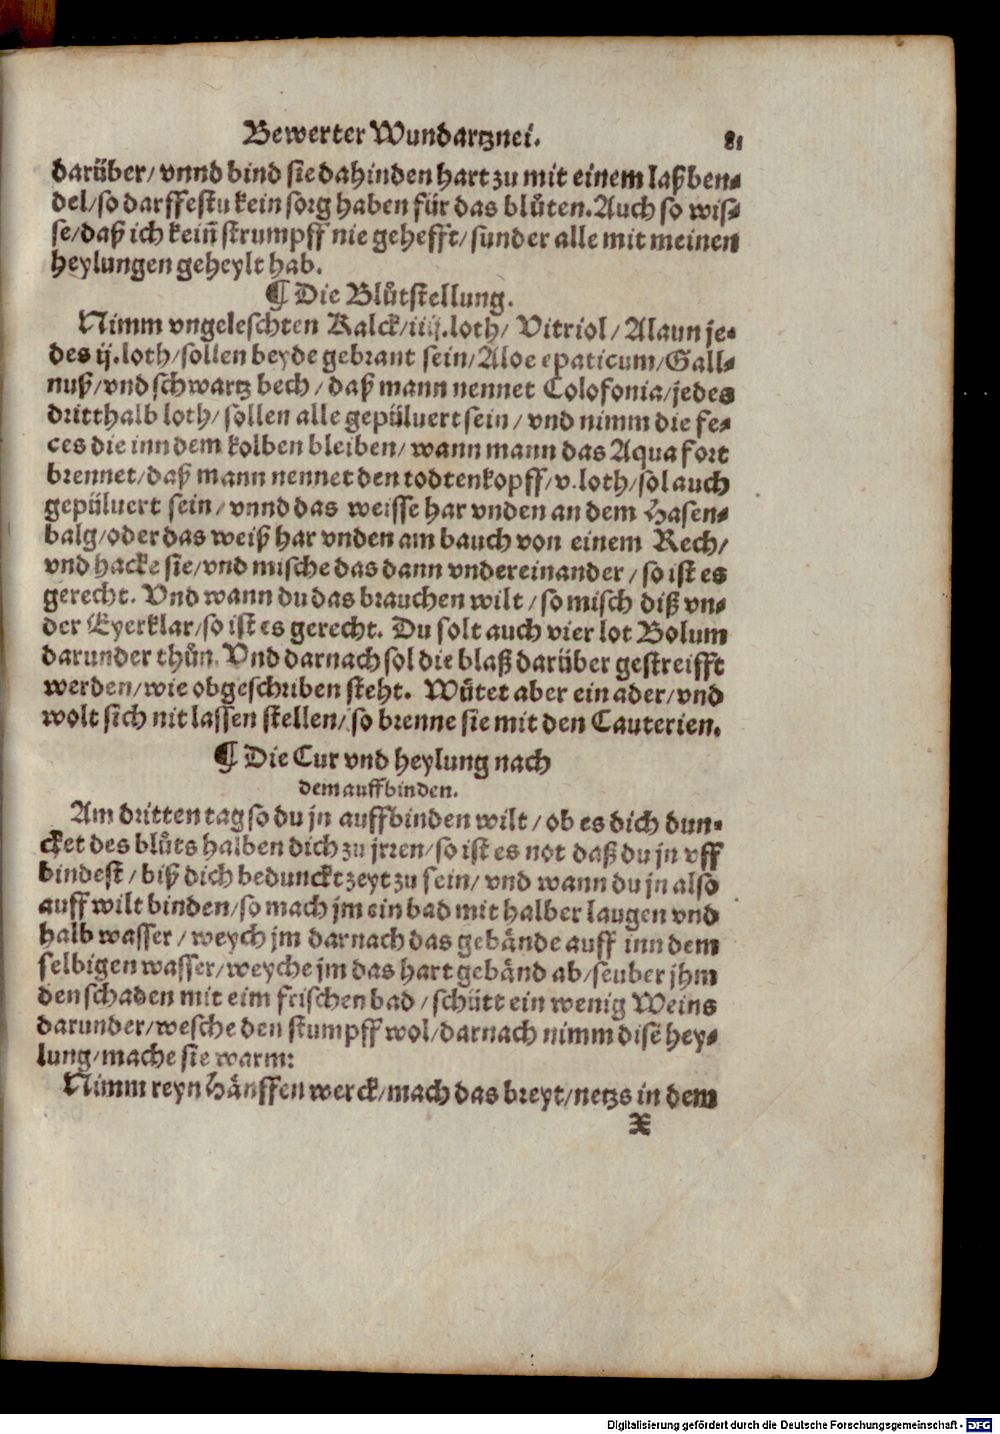 Bewerter Wundartznei. 81
darüber/ vnnd bind sie dahinden hart zu mit einem laßben⸗
del/ so darffestu kein sorg haben für das blůten. Auch so wis⸗
se/ daß ich keiñ strumpff nie gehefft/ sunder alle mit meinen
heylungen geheylt hab.
¶ Die Blůtstellung.
Nimm vngeleschten Kalck/ iiij. loth/ Vitriol/ Alaun je⸗
des ij. loth/ sollen beyde gebrant sein/ Aloe epaticum/ Gall⸗
nuß/ vnd schwartz bech/ daß mann nennet Colofonia/ jedes
dritthalb loth/ sollen alle gepüluert sein/ vnd nimm die fe⸗
ces die inn dem kolben bleiben/ wann mann das Aqua fort
brennet/ daß mann nennet den todtenkopff/ v. loth/ sol auch
gepüluert sein/ vnnd das weisse har vnden an dem Hasen⸗
balg/ oder das weiß har vnden am bauch von einem Rech/
vnd hacke sie/ vnd mische das dann vndereinander/ so ist es
gerecht. Vnd wann du das brauchen wilt/ so misch diß vn⸗
der Eyerklar/ so ist es gerecht. Du solt auch vier lot Bolum
darunder thůn. Vnd darnach sol die blaß darüber gestreifft
werden/ wie obgeschriben steht. Wůtet aber ein ader/ vnd
wolt sich nit lassen stellen/ so brenne sie mit den Cauterien.
¶ Die Cur vnd heylung nach
dem auffbinden.
Am dritten tag so du jn auffbinden wilt/ ob es dich dun⸗
cket des blůts halben dich zu jrren/ so ist es not daß du jn vff
bindest/ biß dich beduncktzeyt zu sein/ vnd wann du jn also
auff wilt binden/ so mach jm ein bad mit halber laugen vnd
halb wasser/ weych jm darnach das gebände auff inn dem
selbigen wasser/ weyche jm das hart gebänd ab/ seuber jhm
den schaden mit eim frischen bad/ schütt ein wenig Weins
darunder/ wesche den stumpff wol/ darnach nimm dise hey⸗
lung/ mache sie warm:
Nimm reyn Hänffen werck/ mach das breyt/ netzs in dem
X
Digitalisierung gefördert durch die Deutsche Forschungsgemeinschaft - DFG